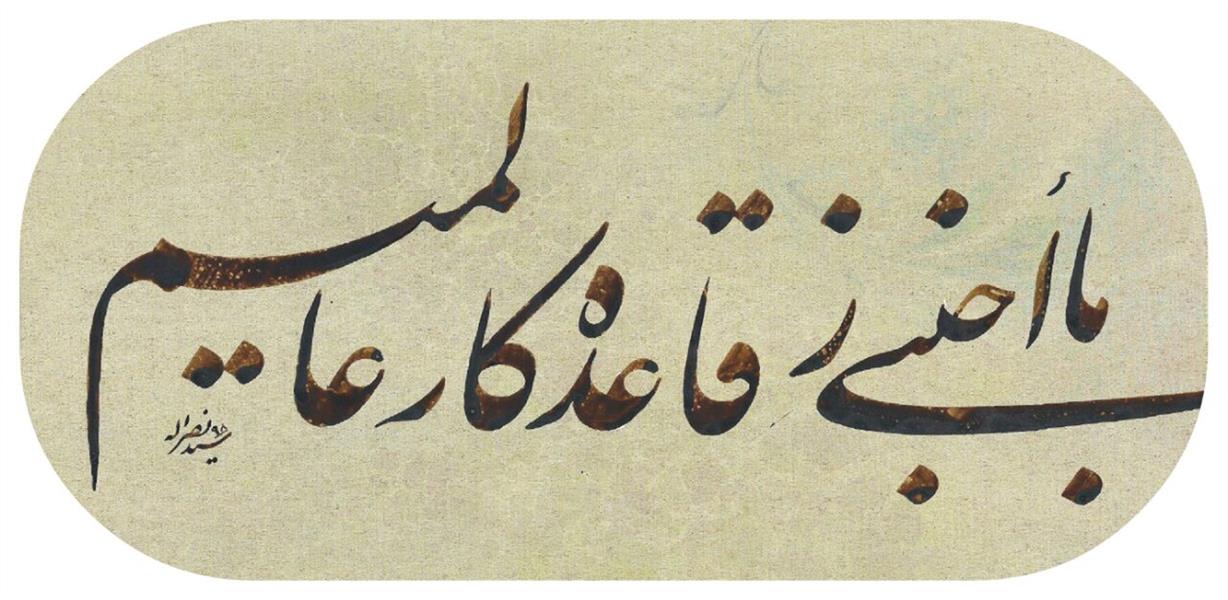 ما أجنبی ز قاعده کار عالمیم
سید نصراله ۹۵